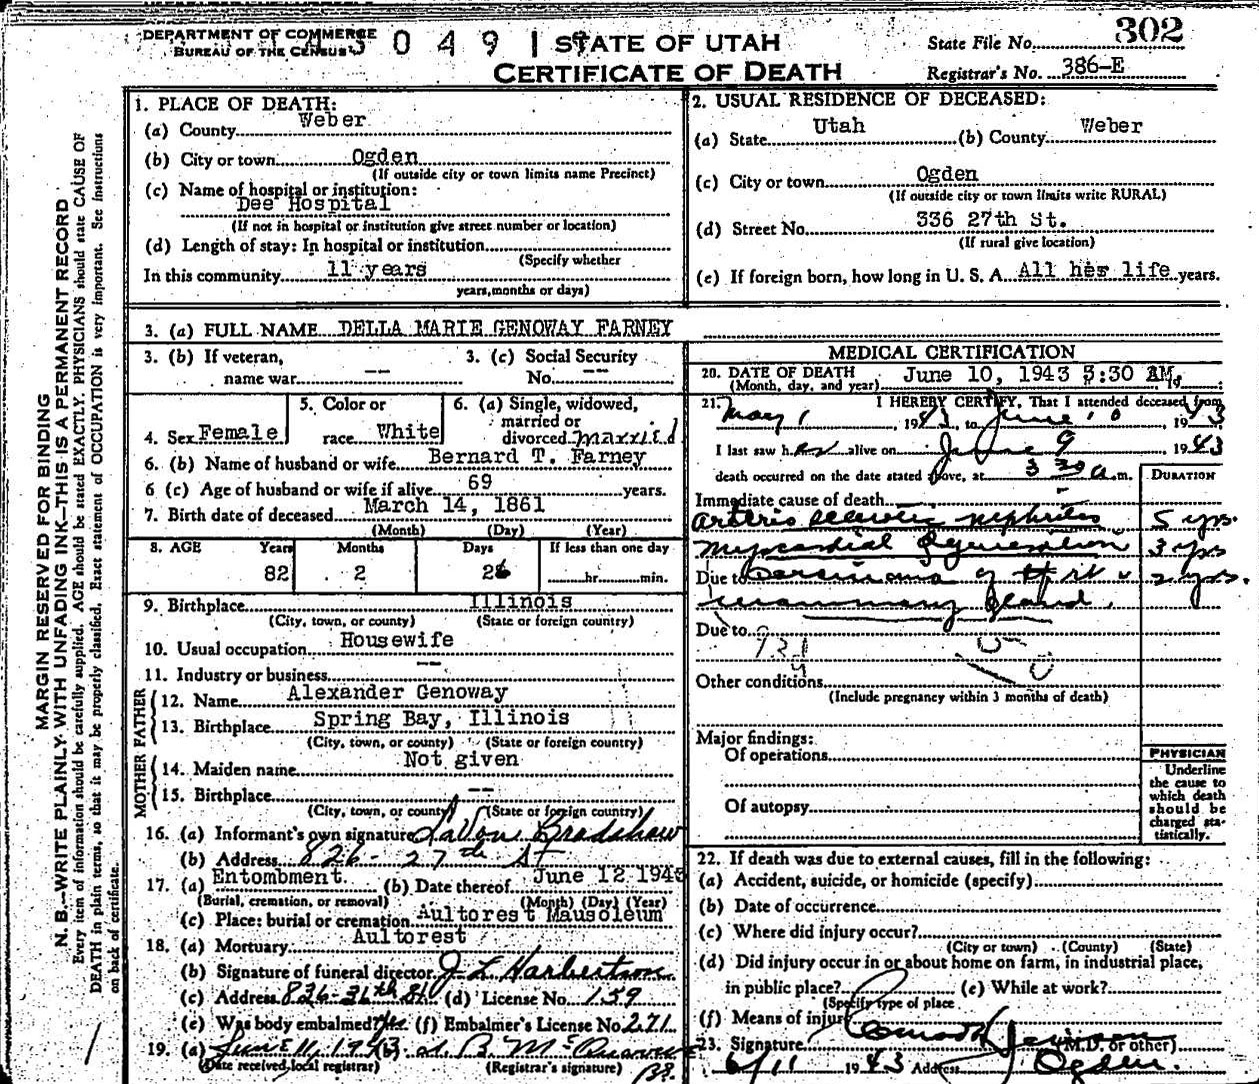 DEPARTMENT OF COMMERCE
BUREAU OF THE CENSUS
3 0 4 9 1
STATE OF UTAH
CERTIFICATE OF DEATH
302
State File No.
Registrar's No. 386-E
MARGIN RESERVED FOR BINDING
N. B.—WRITE PLAINLY WITH UNFADING INK—THIS IS A PERMANENT RECORD
Every item of information should be carefully supplied. AGE should be stated EXACTLY. PHYSICIANS should state CAUSE OF
DEATH in plain terms, so that it may be properly classified. Exact statement of OCCUPATION is very important. See instructions
on back of certificate.
1. PLACE OF DEATH:
(a) County Weber
(b) City or town Ogden
(If outside city or town limits name Precinct)
(c) Name of hospital or institution:
Dee Hospital
(If not in hospital or institution give street number or location)
(d) Length of stay: In hospital or institution
(Specify whether
In this community 11 years
years, months or days)
2. USUAL RESIDENCE OF DECEASED:
(a) State Utah (b) County Weber
(c) City or town Ogden
(If outside city or town limits write RURAL)
(d) Street No. 336 27th St.
(If rural give location)
(e) If foreign born, how long in U. S. A. All her life years.
3. (a) FULL NAME DELLA MARIE GENOWAY FARNEY
3. (b) If veteran,
name war --
3. (c) Social Security
No. --
4. Sex Female
5. Color or
race White
6. (a) Single, widowed,
married or
divorced married
6. (b) Name of husband or wife Bernard T. Farney
6 (c) Age of husband or wife if alive 69 years.
7. Birth date of deceased March 14, 1861
(Month) (Day) (Year)
8. AGE Years Months Days If less than one day
82 2 26 hr. min.
9. Birthplace Illinois
(City, town, or county) (State or foreign country)
10. Usual occupation Housewife
11. Industry or business --
FATHER
12. Name Alexander Genoway
13. Birthplace Spring Bay, Illinois
(City, town, or county) (State or foreign country)
MOTHER
14. Maiden name Not given
15. Birthplace --
(City, town, or county) (State or foreign country)
16. (a) Informant's own signature LaVon Bradshaw
(b) Address 826 - 27th St
17. (a) Entombment (b) Date thereof June 12 1943
(Burial, cremation, or removal) (Month) (Day) (Year)
(c) Place: burial or cremation Aultorest Mausoleum
18. (a) Mortuary Aultorest
(b) Signature of funeral director J L Harbertson
(c) Address 836-36th St (d) License No. 159
(e) Was body embalmed? Yes (f) Embalmer's License No. 271
19. (a) June 11, 1943
(Date received local registrar) (Registrar's signature)
MEDICAL CERTIFICATION
20. DATE OF DEATH
(Month, day, and year) June 10, 1943 3:30 AM.
21. I HEREBY CERTIFY, That I attended deceased from
May 1, 1943, to June 10 1943
I last saw her alive on June 9 1943
death occurred on the date stated above, at 3 30 a.m.
DURATION
Immediate cause of death
arterio sclerotic nephritis 5 yrs.
Myocardial degeneration 3 yrs
Due to Carcinoma of 2 yrs.
mammary gland.
Due to
Other conditions
(Include pregnancy within 3 months of death)
Major findings:
Of operations
Of autopsy
PHYSICIAN
Underline
the cause to
which death
should be
charged sta-
tistically.
22. If death was due to external causes, fill in the following:
(a) Accident, suicide, or homicide (specify)
(b) Date of occurrence
(c) Where did injury occur?
(City or town) (County) (State)
(d) Did injury occur in or about home on farm, in industrial place,
in public place? (e) While at work?
(Specify type of place
(f) Means of injury
23. Signature (M.D. or other)
6/11 1943 Address Ogden.